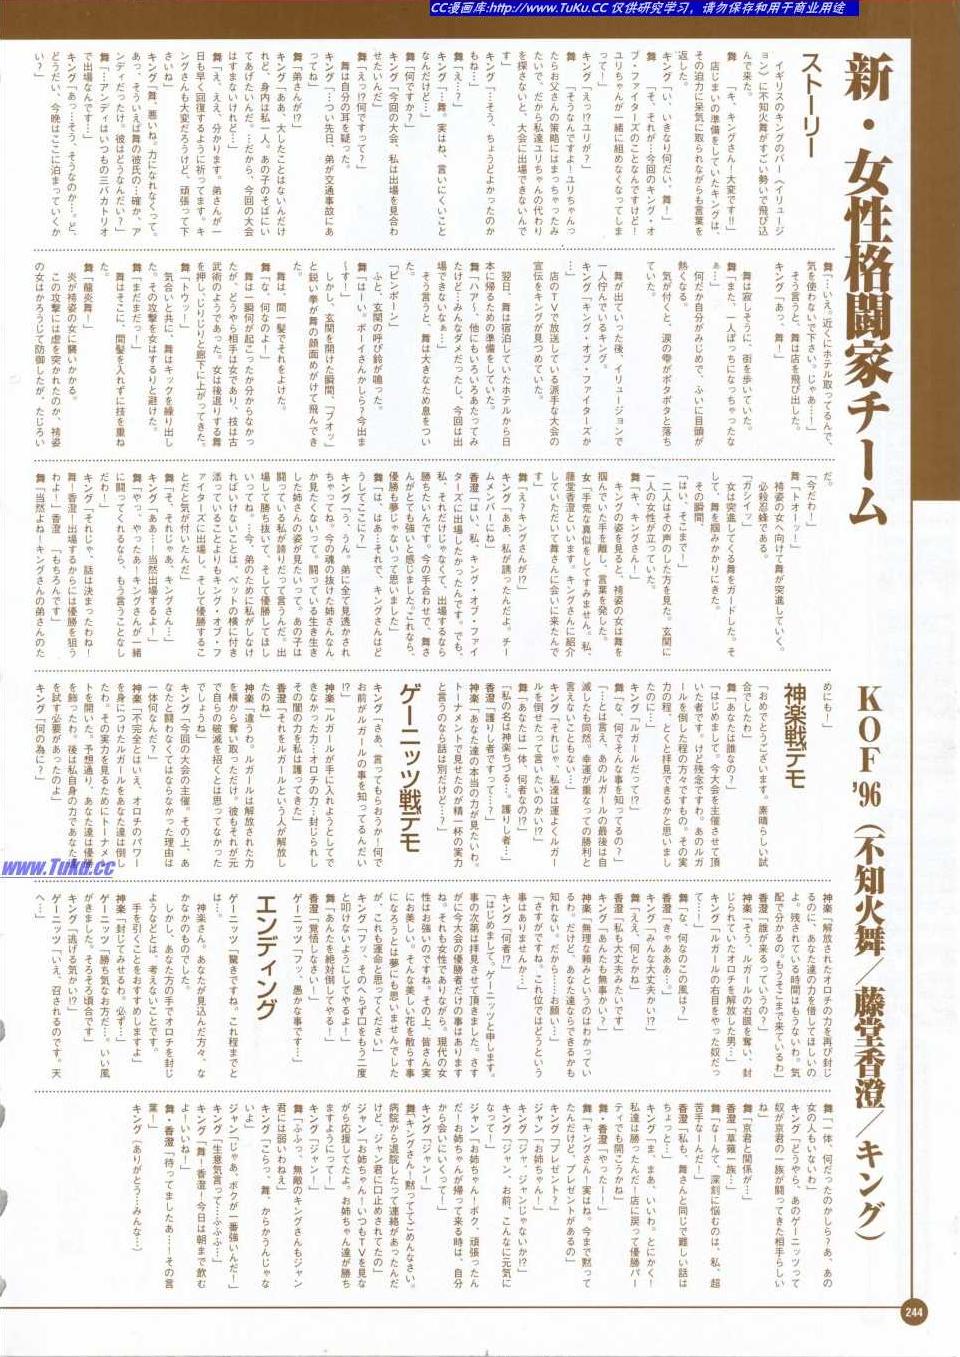 CC漫画库:http://www.TuKu.CC 仅供研究学习，请勿保存和用于商业用途
新・女性格闘家チーム
KOF'96(不知火舞／藤堂香澄／キング)
ストーリー
イギリスのキングのバー〈イリュージ
ョン〉に不知火舞がすごい勢いで飛び込
んで来た。
舞「キ、キングさん！大変です!!」
店じまいの準備をしていたキングは、
その迫力に呆気に取られながらも言葉を
返した。
キング「い、いきなり何だい、舞！」
舞「そ、それが…今回のキング・オ
ブ・ファイターズのことなんですけど！
ユリちゃんが一緒に組めなくなってしま
って！」
キング「えっ!?ユリが?」
舞「そうなんですよ！ユリちゃんっ
たらお父さんの策略にはまっちゃったみ
たいで、だから私達ユリちゃんの代わり
を探さないと、大会に出場できないんで
す」
キング「…そう、ちょうどよかったのか
舞「え…?」
キング「…舞。実はね、言いにくいこと
なんだけど…」
舞「何ですか?」
キング「今回の大会、私は出場を見合わ
せたいんだ」
舞「えっ!?何ですって?」
舞は自分の耳を疑った。
キング「…つい先日、弟が交通事故にあ
ってね」
舞「弟さんが!?」
キング「ああ、大したことはないんだけ
れど、身内は私一人。あの子のそばにい
てあげたいんだ。…だから、今回の大会
はすまないけれど…」
舞「え、ええ、分かります。弟さんが一
日も早く回復するように祈ってます。キ
ングさんも大変だろうけど、頑張って下
さいね」
キング「舞、悪いね。力になれなくって。
あっ、そういえば舞の彼氏の…確か、ア
ンディだったけ。彼はどうなんだい?」
舞「…アンディはいつもの三バカトリオ
で出場なんです…」
キング「あっ…そう、そうなのか…。ど、
どうだい、今晩はここに泊まっていくか
い?」
舞「…いえ。近くにホテル取ってるんで、
気を使わないで下さい。じゃあ…！」
そう言うと、舞は店を飛び出した。
キング「あっ、舞！」
舞は寂しそうに、街を歩いていた。
舞「また、一人ぼっちになっちゃったな
ぁ…」
何だか自分がみじめで、ふいに目頭が
熱くなる。
気が付くと、涙の雫がポタポタと落ち
ていた。
舞が出ていった後、イリュージョンで
一人佇んでいるキング。
キング「キング・オブ・ファイターズか
…」
店のTVで放送している派手な大会の
宣伝をキングが見つめていた。
翌日、舞は宿泊していたホテルから日
本に帰るための準備をしていた。
舞「ハア〜、他にもいろいろあたってみ
たけど…みんなダメだったし、今回は出
場できないなぁ…」
そう言うと、舞は大きなため息をつい
た。
「ピンポーン」
ふと、玄関の呼び鈴が鳴った。
舞「はーい。ボーイさんかしら?今出ま
〜す！」
しかし、玄関を開けた瞬間、「ブオッ」
と鋭い拳が舞の顔面めがけて飛んでき
た。
舞は、間一髪でそれをよけた。
舞「な、何なのよ！」
舞は一瞬何が起こったか分からなかっ
たが、どうやら相手は女であり、技は古
武術のようであった。女は後退りする舞
を押し、じりじりと廊下に上がってきた。
舞「トウッ！」
気合いと共に、舞はキックを繰り出し
た。その攻撃を女はするりと避けた。
舞「まだまだっ！」
舞はそこに、間髪を入れずに技を重ね
た。
舞「龍炎舞！」
炎が袴姿の女に襲いかかる。
この攻撃には虚を突かれたのか、袴姿
の女はかろうじて防御したが、たじろい
だ。
「今だわ！」
舞「トオーッ！」
袴姿の女へ向けて舞が突進していく。
必殺忍蜂である。
「ガシイッ」
女は突進してくる舞をガードした。そ
して、舞を掴みかかりにきた。
その瞬間、
「はい、そこまで！」
二人はその声のした方を見た。玄関に
一人の女性が立っていた。
舞「キ、キングさん！」
キングの姿を見ると、袴姿の女は舞を
掴んでいた手を離し、言葉を発した。
女「手荒な真似をしてすみません。私、
藤堂香澄といいます。キングさんに紹介
していただいて舞さんに会いに来たんで
す」
舞「え?キングさんが!?」
キング「ああ、私が誘ったんだよ。チー
ムメンバーにね」
香澄「はい、私、キング・オブ・ファイ
ターズに出場したかったんです。でも、
私、それだけじゃなくて、出場するなら
勝ちたいんです。今の手合わせで、舞さ
んがとても強いと感じました。これなら、
優勝も夢じゃないって思いました」
舞「は、はあ…それで、キングさんはど
うしてここに?」
キング「う、うん。弟に全て見透かされ
ちゃってね。今の魂の抜けた姉さんなん
か見たくないって。闘っている生き生き
した姉さんの姿が見たいって。あの子は
闘っている私が誇りだって言うんだ。出
場して勝ち抜いて、そして優勝してほし
いってね。…今、弟のために私がしなけ
ればいけないことは、ベットの横に付き
添っていることよりもキング・オブ・フ
ァイターズに出場し、そして優勝するこ
とだと気が付いたんだ」
舞「そ、それじゃあ、キングさん…」
キング「ああ…！当然出場するよ！」
舞「やっ、やったあ！キングさんが一緒
に闘ってくれるなら、もう言うことなし
だわ！」
キング「それじゃ、話は決まったわね！
舞！香澄！出場するからには優勝を狙う
わよ！」香澄「もちろんです」
舞「当然よね！キングさんの弟さんのた
めにも！」
神楽戦デモ
「おめでとうございます。素晴らしい試
合でしたわ」
舞「あなたは誰なの?」
「はじめまして。今大会を主催させて頂
いた者です。けど残念ですわ。あのルガ
ールを倒した程の方々ですもの。その実
力の程、とくと拝見できるかと思いまし
たのに…」
キング「ルガールだって!?」
舞「な、何でそんな事を知ってるの?」
「…とは言え、あのルガールの最後は自
滅したも同然。幸運が重なっての勝利と
言えないこともない…」
キング「それじゃ、私達は運よくルガー
ルを倒せたって言いたいのかい!?」
舞「あなたは一体、何者なの!?」
「私の名は神楽ちづる…。護りし者…」
香澄「護りし者ですって…?」
神楽「あなた達の本当の力が見たいわ。
トーナメントで見せたのが精一杯の実力
と言うのなら話は別だけど…?」
ゲーニッツ戦デモ
キング「さあ、言ってもらおうか！何で
お前がルガールの事を知ってるんだい
!?」
神楽「ルガールが手に入れようとしてで
きなかった力…オロチの力…封じられし
その闇の力を私は護ってきた」
香澄「それをルガールという人が解放し
たのね」
神楽「違うわ。ルガールは解放された力
を横から奪い取っただけ。彼もそれが元
で自らの破滅を招くとは思ってなかった
でしょうね」
キング「今回の大会の主催。その上、あ
なたと闘わなくてはならなかった理由は
一体何なんだ?」
神楽「不完全とはいえ、オロチのパワー
を身につけたルガールをあなた達は倒し
たわ。その実力を見るためにトーナメン
トを開いた。予想通り、あなた達は優勝
を飾ったわ。後は私自身の力であなた達
を試す必要があったのよ」
キング「何の為に?」
神楽「解放されたオロチの力を再び封じ
るのに、あなた達の力を借りてほしいの
よ。残されている時間はもうないわ。気
配で分かるの。もうそこまで来ているわ」
香澄「誰が来るっていうの?」
神楽「そう、ルガールの右眼を奪い、封
じられていたオロチを解放した男…」
キング「ルガールの右目をやった奴だっ
て…！」
舞「な、何なのこの風は?」
香澄「きゃあああ…」
キング「みんな大丈夫かい!?」
舞「ええ、何とかね」
香澄「私も大丈夫みたいです」
キング「あんたも無事かい?」
神楽「無理な頼みというのはわかってい
るわ。だけど、あなた達ならできるかも
知れない。だから……お願い」
「さすがですね。これ位ではどうという
事はありませんか」
キング「何者!?」
「はじめまして。ゲーニッツと申します。
事の次第は拝見させて頂きました。さす
がに今大会の優勝者だけの事はあります
ね。それも女性でありながら。現代の女
性はお強いのですね。その上、皆さん実
にお美しい。そんな美しい花を散らす事
になろうとは夢にも思いませんでした
が、これも運命と思ってください」
キング「フッ、そのへらず口をもう二度
と叩けないようにしてやるよ！」
舞「あんたを絶対倒してやる！」
香澄「覚悟しなさい！」
ゲーニッツ「フッ、愚かな事です…」
エンディング
ゲーニッツ「驚きですね。これ程までと
は…。
神楽さん。あなたが見込んだ方々、な
かなかのものでした。
しかし、あなた方の手でオロチを封じ
ようなどとは、考えないことです。
手を引くことをおすすめしますよ」
神楽「封じてみせるわ。必ず…」
ゲーニッツ「勝ち気なお方だ…。いい風
がきました。そろそろ頃合です」
キング「逃げる気かい!?」
ゲーニッツ「いえ、召されるのです。天
へ…」
舞「一体、何だったのかしら?あ、あの
女の人もいないわ」
キング「どうやら、あのゲーニッツって
奴が京君の一族が闘ってきた相手らしい
ね」
舞「京君と関係が…」
香澄「草薙一族…」
舞「なーんて、深刻に悩むのは、私、超
苦手なーんだ！」
香澄「私も、舞さんと同じで難しい話は
ちょっと…」
キング「ま、まあ、いいわ。とにかく！
私達は勝ったんだ！店に戻って優勝パー
ティでも開こうかね」
舞・香澄「やったー！」
舞「キングさん！実はね。今まで黙って
たんだけど、プレゼントがあるの」
キング「プレゼント?」
ジャン「お姉ちゃん！」
キング「ジャ、ジャンじゃないか!?」
キング「ジャン、お前、こんなに元気に
なって！」
ジャン「お姉ちゃん！ボク、頑張ったん
だ！お姉ちゃんが帰って来る時は、自分
から会いにいくって！」
キング「ジャン！」
舞「キングさん！黙っててごめんなさい。
病院から退院したって連絡があったんだ
けど、ジャン君に口止めされてたの」
ジャン「お姉ちゃん！いつもTVを見な
がら応援してたよ。お姉ちゃん達が勝ち
ますようにって！」
キング「ジャン！」
舞「ふふっ、無敵のキングさんもジャン
君には弱いわねえ」
キング「こらっ、舞、からかうんじゃな
いよ」
ジャン「じゃあ、ボクが一番強いんだ！」
キング「生意気言って…ふふふ…」
キング「舞！香澄！今日は朝まで飲む
よ！いいね！」
舞・香澄「待ってましたあ…！その言
葉！」
キング（ありがとう…みんな…）
www.Tuku.cc
244